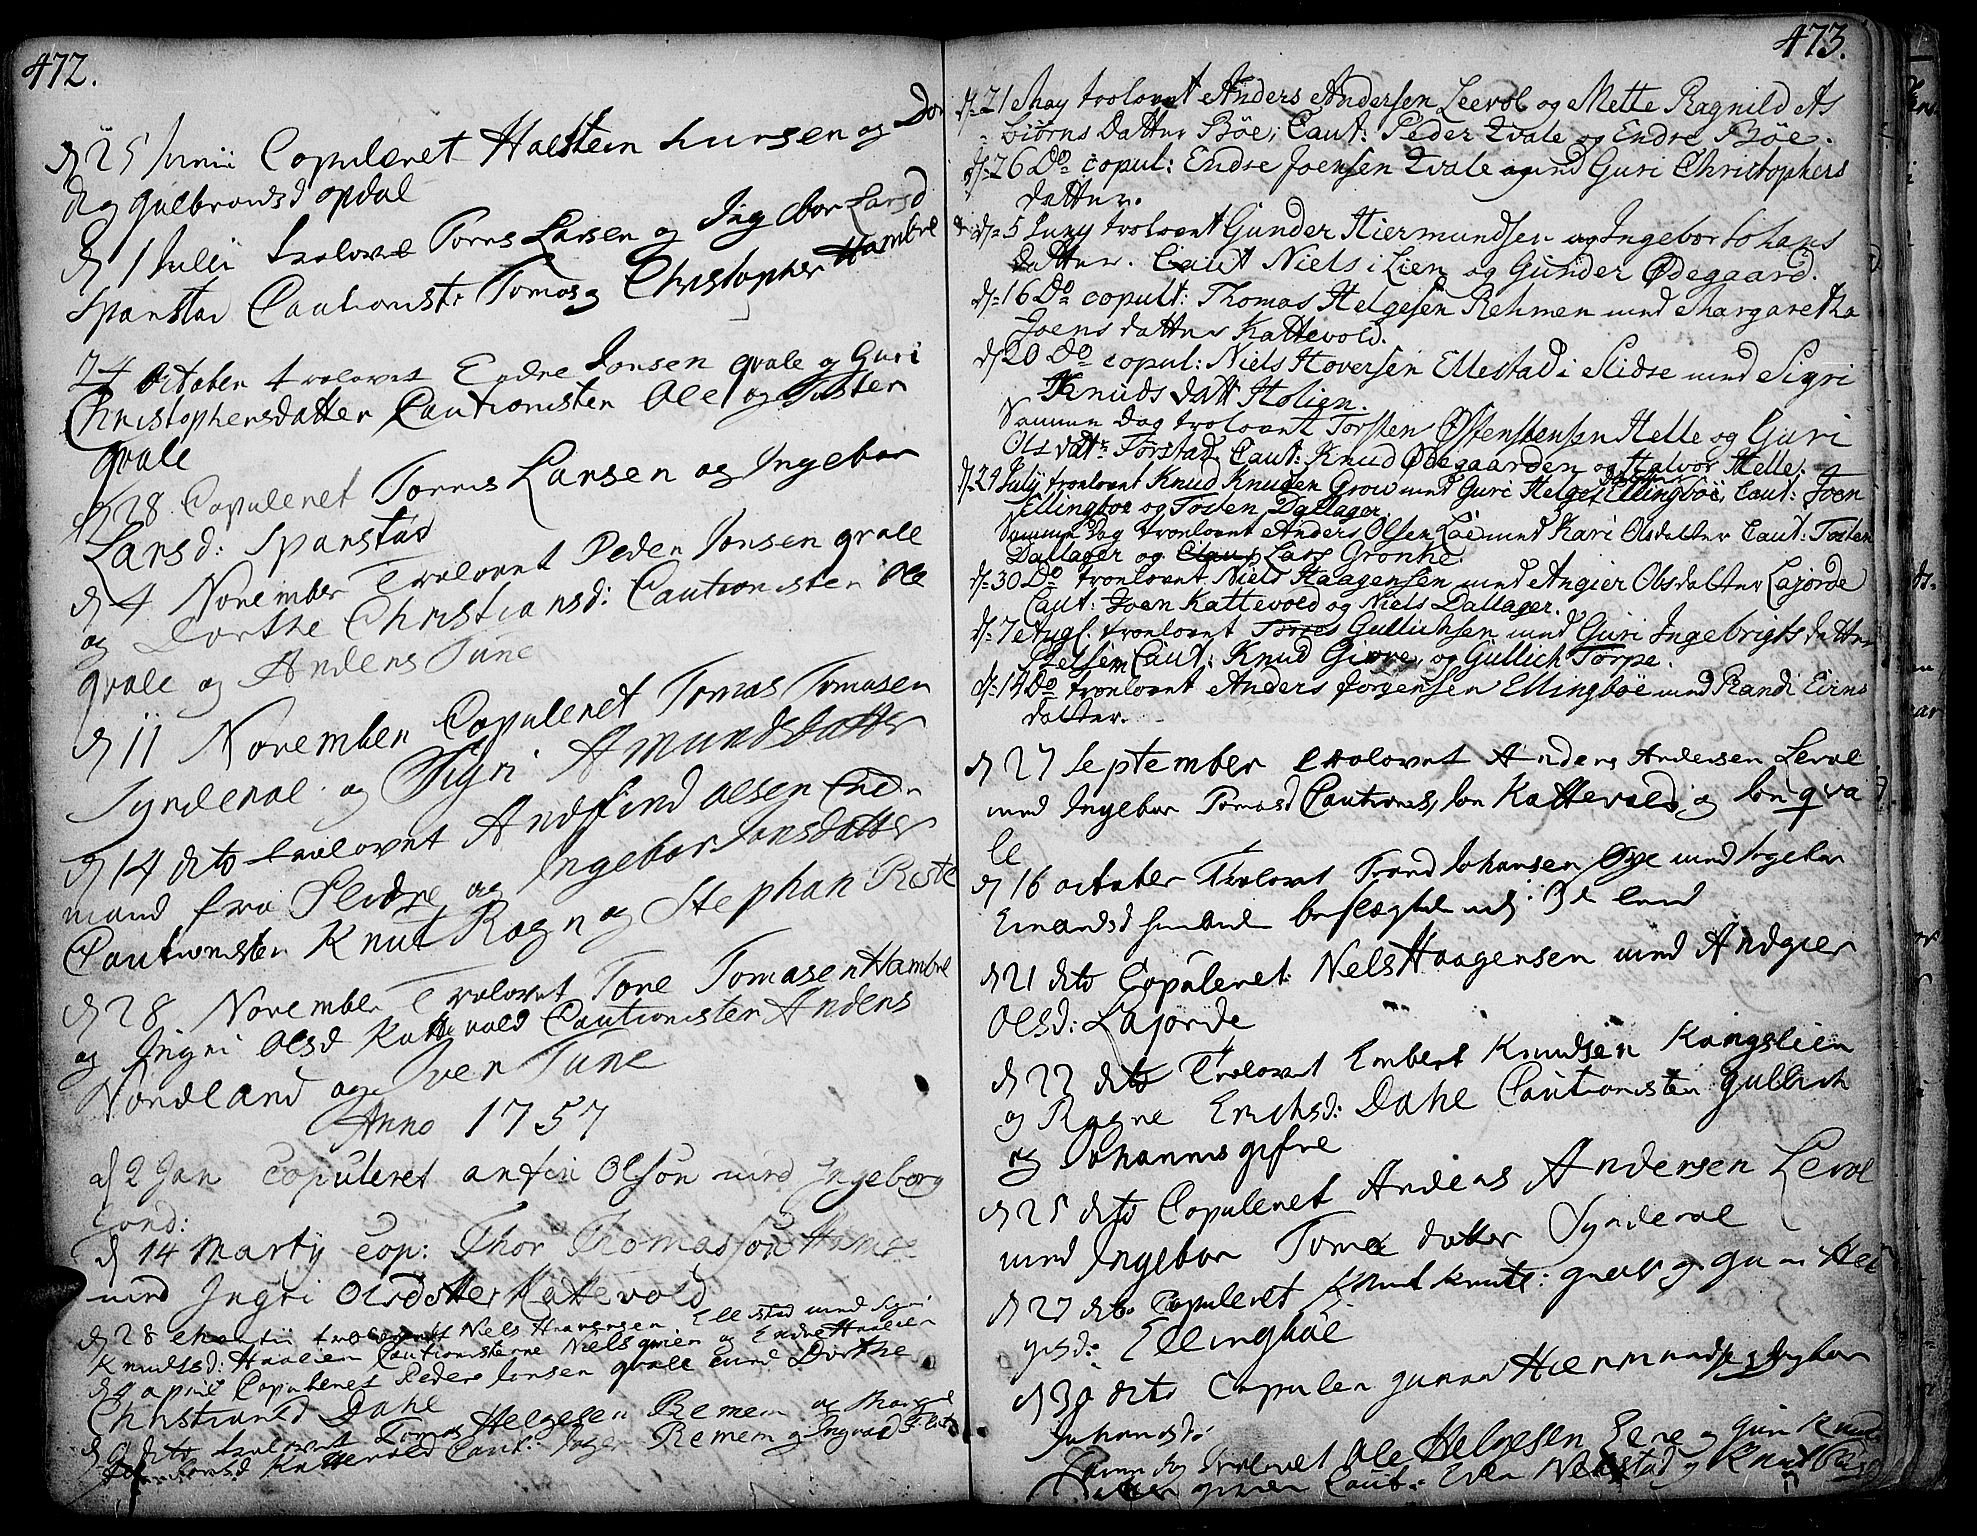 472.
d 25 Junii Copuleret Halstein Lursen og Dor
dog gulbrandsd opdal
d 1 Julii trolovet Torns Larsen og Ingebor Larsd
Spanstad Cautionist: Tomas og Christopher Hambre
24 October trolovet Endre Jonsen qvale og Guri
Christophersdatter Cautionister Ole og Tosten
qvale
d 28 Copuleret Tornis Larsen og Ingebor
Larsd: Spanstad
d 4 November Trolovet Peder Jonsen qvale
og Dorthe Christiansd: Cautionister Ole
qvale og Anders Tune
d 11 November Copuleret Tomas Tomasen
Synderol og Sigri Amundsdatter
d 14 dito trolovet Andfind Olsen
mand fra Slidre og Ingebor Jonsdatter
Cautionister Knut Rogn og Stephan Roste
d 28 November Trolovet Tore Tomasen Hambre
og Ingri Olsd Kattevold Cautionister Anders
Nordland og Iver Tune
Anno 1757
d 2 Jan Copuleret anfin Olsøn med Ingeborg
Jond:
d 14 Martij Cop: Thor Thomassøn
med Ingri Olsdatter Kattevold
d 28 Martii trolovet Niels Haavensen Ellestad med Sigri
Knudsd: Haalien Cautionisterne Niels qvien og Endre Haalien
d 4 april Copuleret Peder Jonsen qvale med Dorthe
Christiansd Dahl
d 9 dito trolovet Tomas Helgesen Remen og Marget
Kattevold Caut: Remem og Ingvald
473.
d: 21 May trolovet Anders Andersen Leevol og Mette Ragnild As
biørns Datter Bøe; Caut: Peder Qvale og Endre Bøe.
d: 26 Do copul: Endre Joensen Qvale med Guri Christophers
datter.
d: 5 Juny trolovet Gunder Hiermundsen og Ingebor Johans
datter. Caut Niels i Lien og Gunder Ødegaard.
d: 16 Do copult: Thomas Helgesen Rehmen med Margaretha
Joens datter Kattevold.
d 20 Do copul: Niels Hoversen Ellestad i Slidre med Sigri
Knuds datt Holien.
Samme Dag trolovet Torsten Østensensen Helle og Guri
Ols datt: Torstad Caut: Knud Ødegaarden og Halvor Helle.
d: 29 July tronlovet Knud Knudsen Grow med Guri Helges datter Ellingbøe, Caut: Joen
Ellingboe og Tosten Dallager.
Samme Dag tronlovet Anders Olsen Lie med Kari Olsdatter Caut: Tosten
Dallager og Lars Grønhe
d: 30 Do tronlovet Niels Haagensen med Angier Olsdatter Lajorde
Caut: Joen Kattevold og Niels Dallager.
d: 7 Augl: tronlovet Torres Gullichsen med Guri Ingebrigts datter
Caut: Knud Giøvre, og Gullich Torpe.
d: 14 Do tronlovet Anders Jorgensen Ellingbøe med Randi Eirns
datter.
d 27 September trolovet Anders Andersen Lerol
med Ingebor Tomasd Cautiones, Jon Kattevold og Jon qva
le
d 16 october Trolovet Trond Johansen Øye med Ingebor
Einarsd beslægted udj: 3de leed
d 21 dito Copuleret Nels Haagensen med Andgier
Olsd: Lajorde
d 22 dito Trolovet Embert Knudsen Kongslien
og Ragne Erichsd: Dahl Cautionisten gullich
og Johannes giøvre
d 25 dito Copuleret Anders Andersen Lerol
med Ingebor Tomes datter Synderol
d 27 dito Copuleret Knut Knuts: og guri Hel
gesd: Ellingbøe
d 30 dito Copuler gunder Hiermundsen og Ingebor
Johansd:
Samme dag trolovet Ole Helgesen Eene og Guri Knuds
Caut: Even Nekstad og Knud